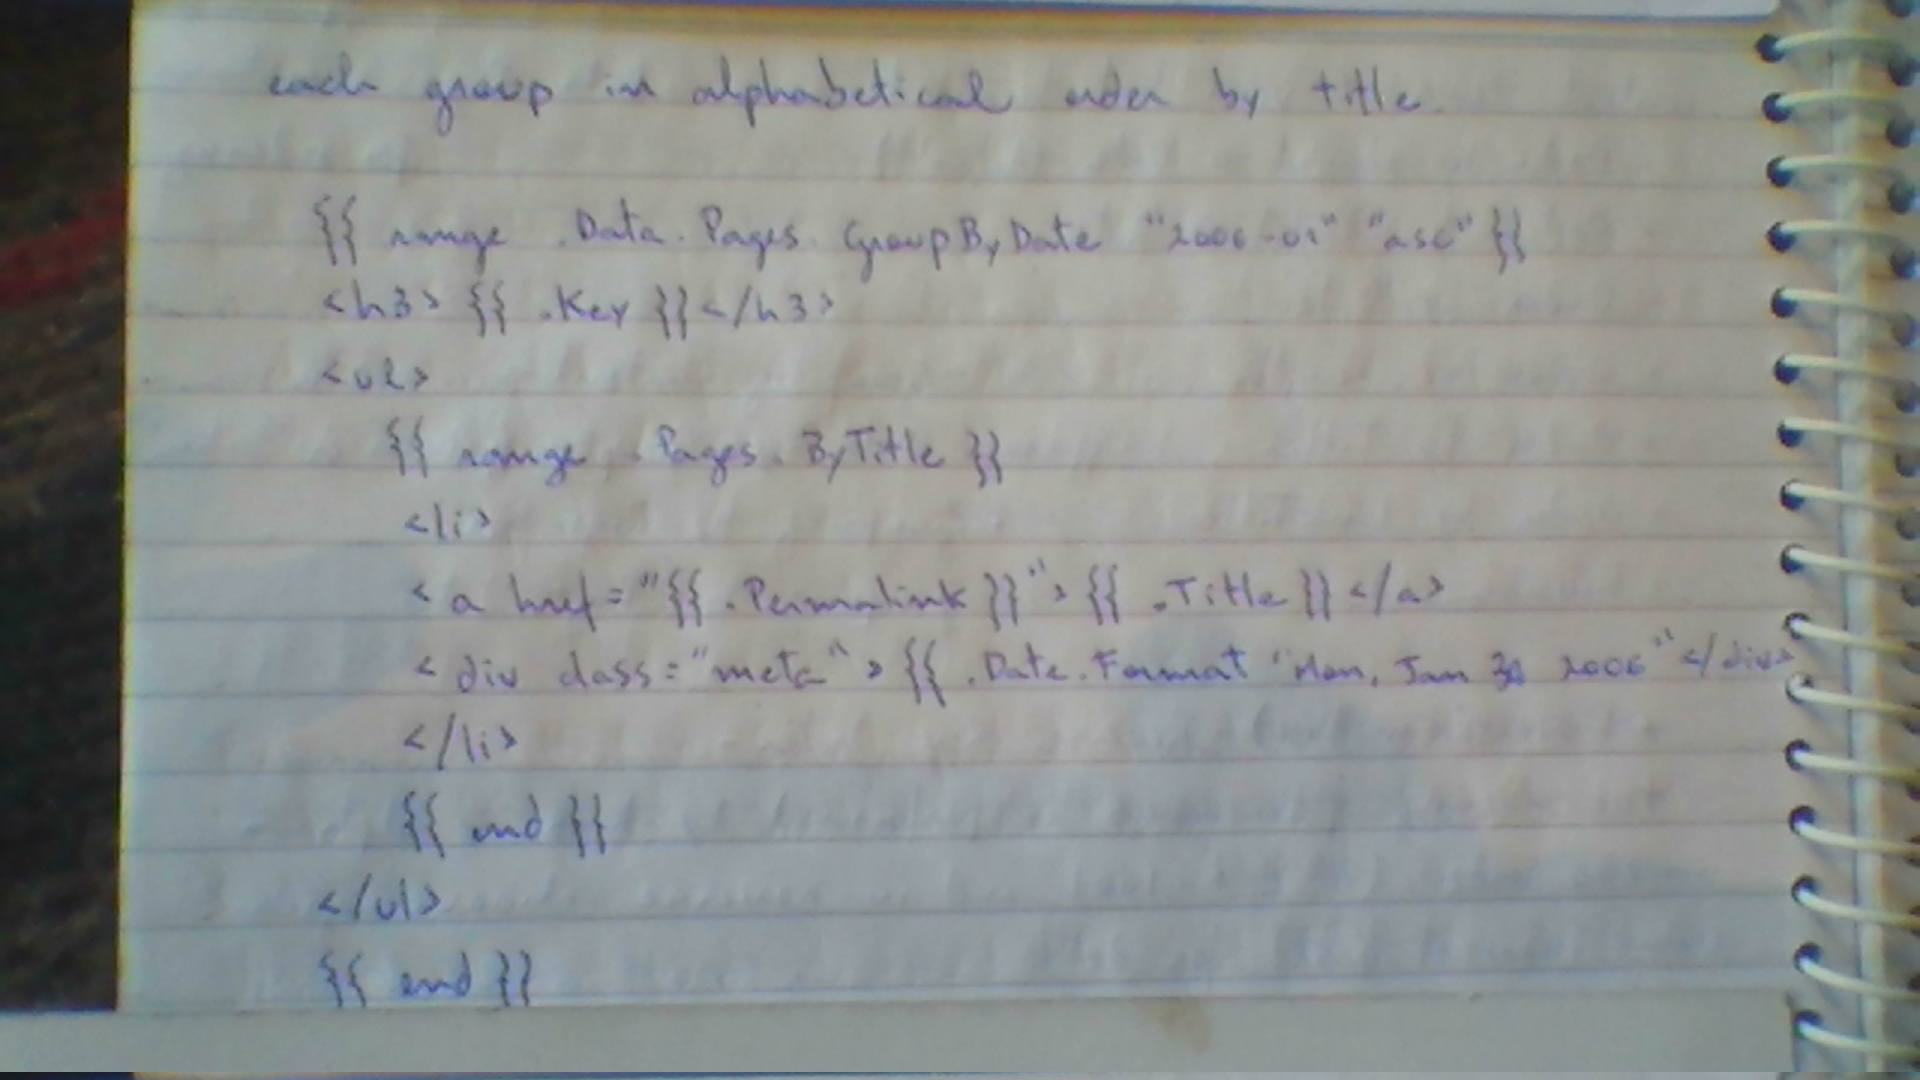 each group in alphabetical order by title.
{{ range .Data.Pages.GroupByDate "2006-01" "asc" }}
<h3> {{ .Key }}</h3>
<ul>
{{ range .Pages.ByTitle }}
</li>
<a href="{{ .Permalink }}"> {{ .Title }}</a>
<div class="meta"> {{ .Date.Format "Mon, Jan 2006"</div>
</li>
{{ end }}
</ul>
{{ end }}